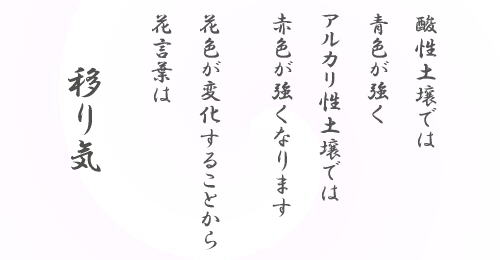 酸性土壌では
青色が強く
アルカリ性土壌では
赤色が強くなります
花色が変化することから
花言葉は
移り気